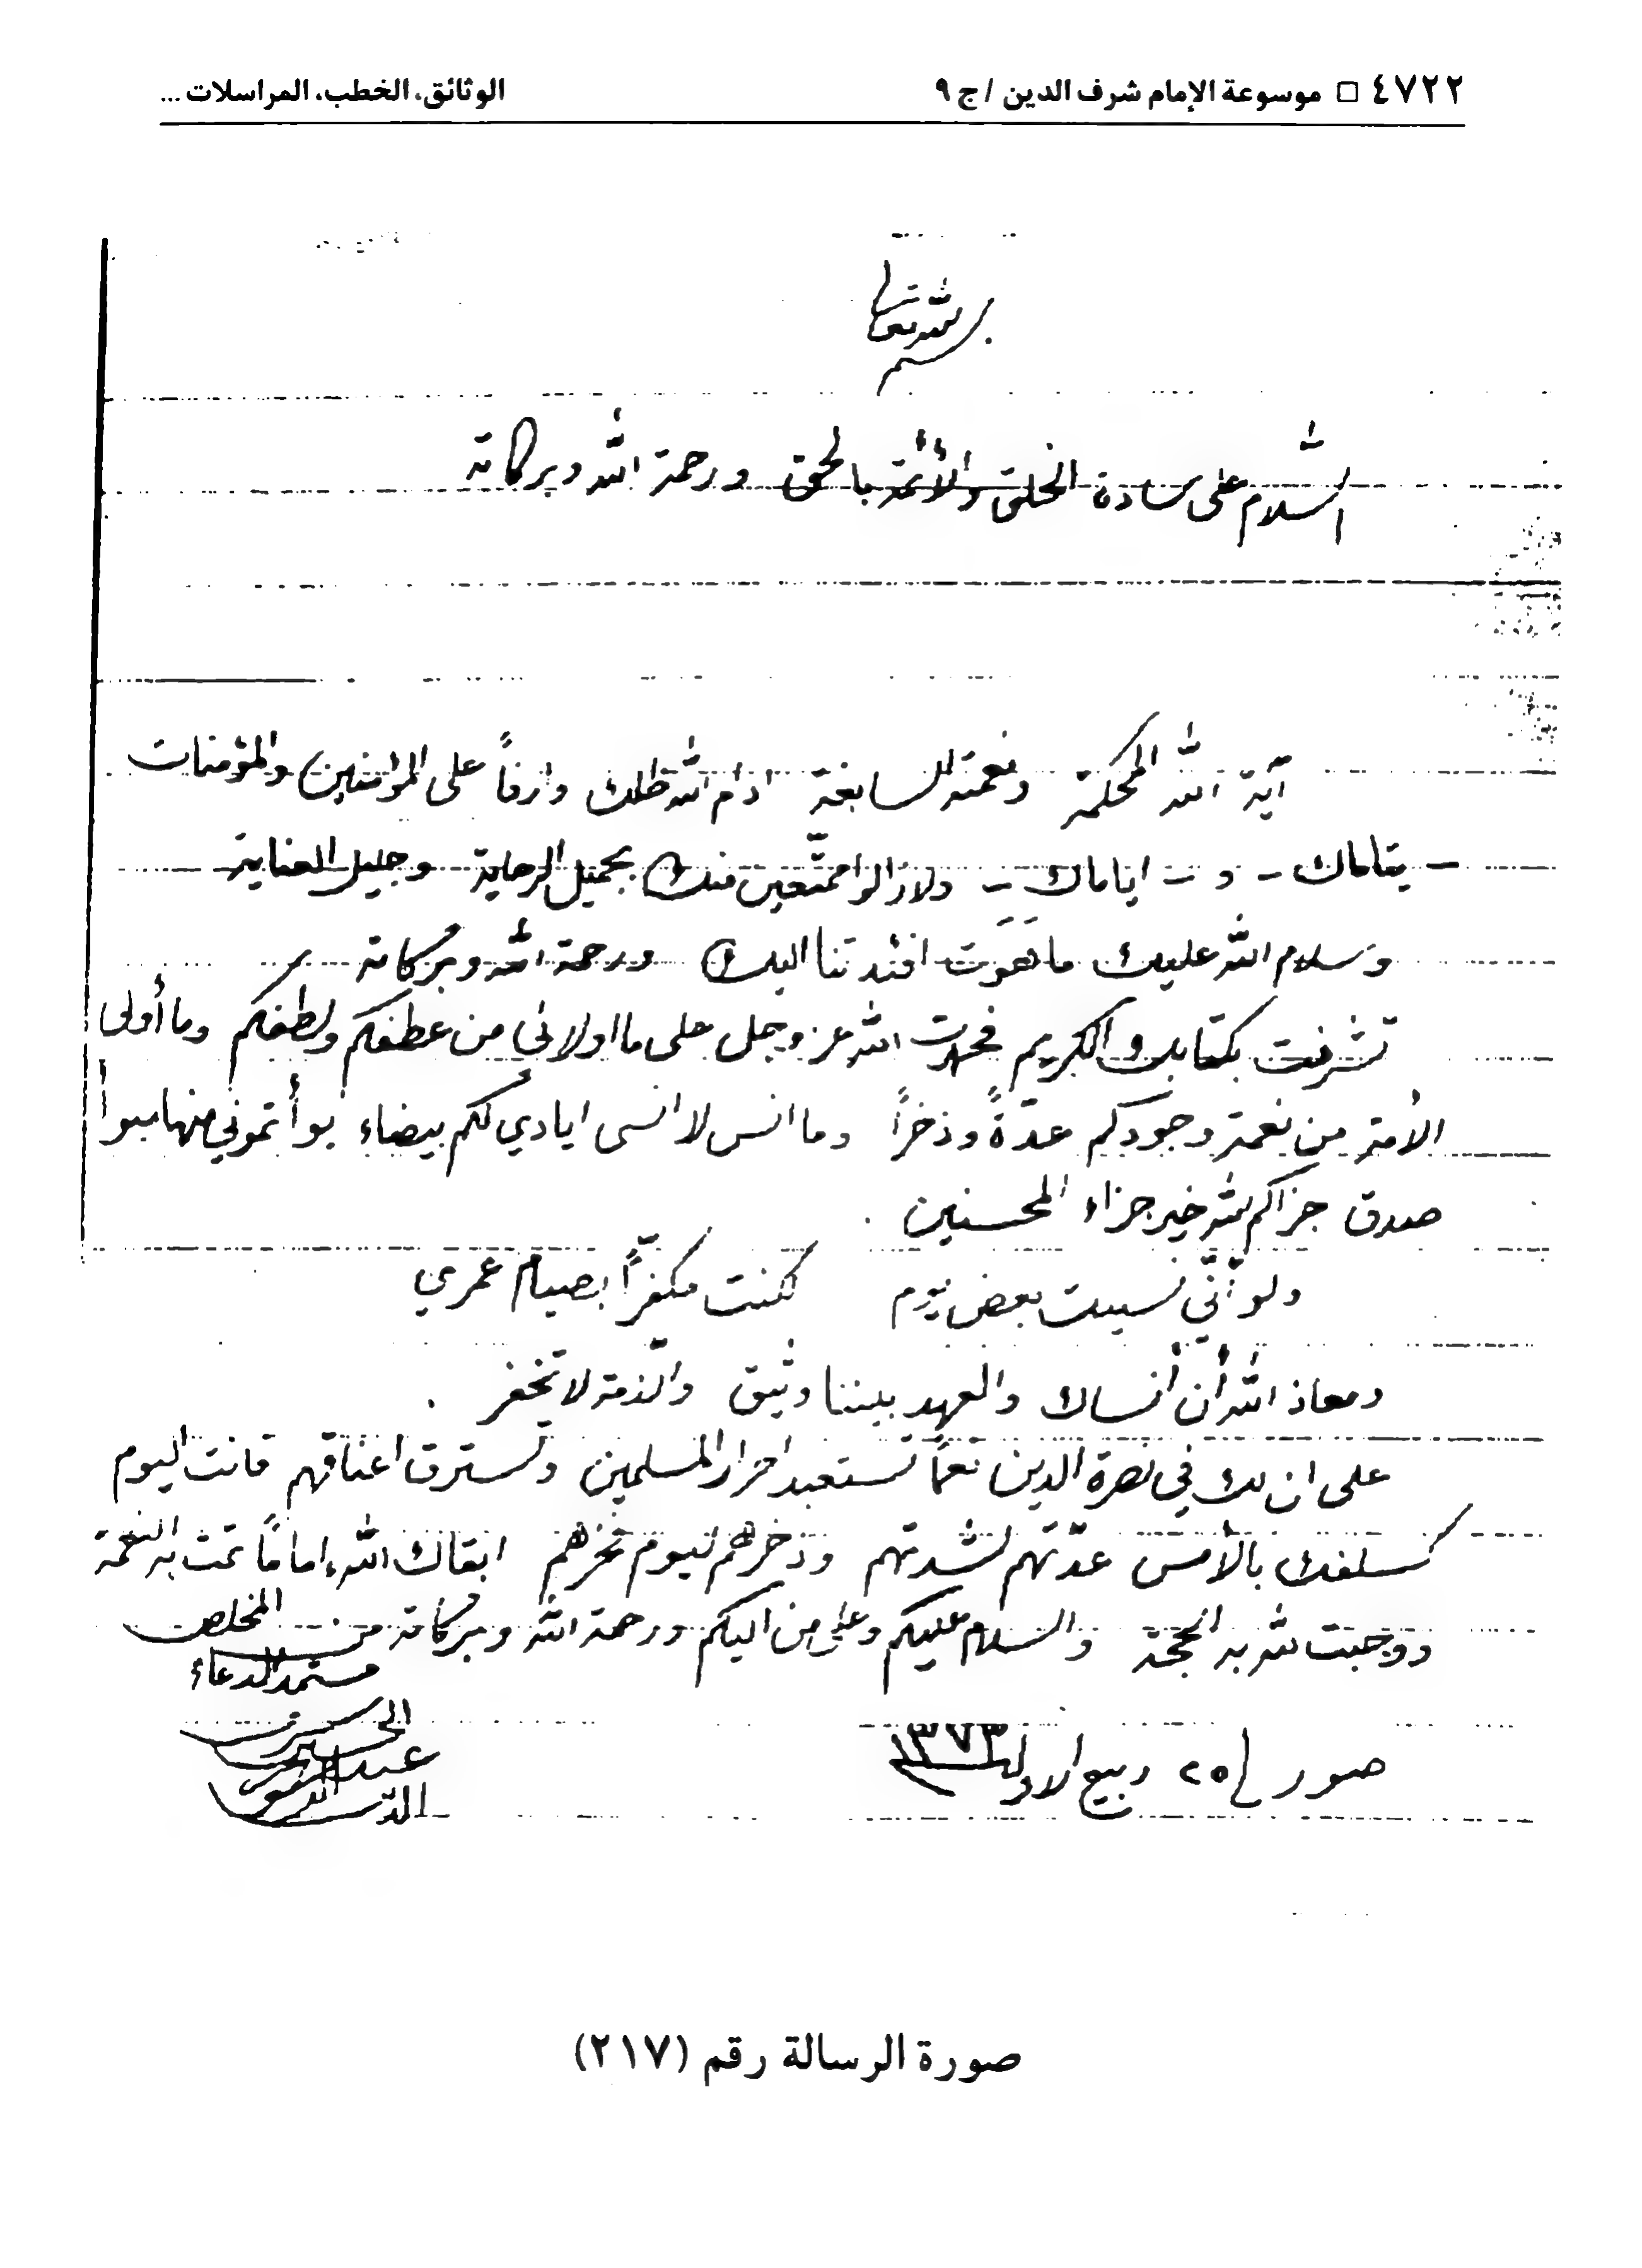 ٤٧٢٢ □ موسوعة الإمام شرف الدين / ج ٩
الوثائق، الخطب، المراسلات ...
بسم الله تعالى
السلام على سادة الخلق والأئمة بالحق ورحمة الله وبركاته
آية الله المحكمة ونعمته السابغة ادام الله ظلك وارفاً على المؤمنين والمؤمنات
- يتاماك - و - اياماك - ولا زالوا ممتّعين منك بجميل الرعاية وجليل العناية
وسلام الله عليك ما هَوَت افئدتنا اليك ورحمة الله وبركاته
تشرفت بكتابك الكريم فحمدت الله عز وجل على ما اولاني من عطفكم ولطفكم وما أولى
الأمة من نعمة وجودكم عدّةً وذخراً وما انس لا انسى ايادي لكم بيضاء بوأتموني منها مبوأ
صدق جزاكم الله خير جزاء المحسنين
ولو أنّي نسيت بعض يوم لكنت مكفّراً بصيام عمري
ومعاذ الله أن أنساك والعهد بيننا وثيق والذمة لا تخفر .
على ان لك في نصرة الدين نعماً تستعبد احرار المسلمين وتسترق اعناقهم فانت اليوم
كسلفك بالأمس عدّتهم لشدتهم وذخرهم ليوم فخرهم ابقاك الله اماماً تمت به النعمة
ووجبت لله به الحجة والسلام عليكم وعلى من اليكم ورحمة الله وبركاته من المخلص
مستمد الدعاء
عبد الحسين شرف الدين الموسوي
صور / ٢٥ ربيع الاول ١٣٧٣
صورة الرسالة رقم (٢١٧)